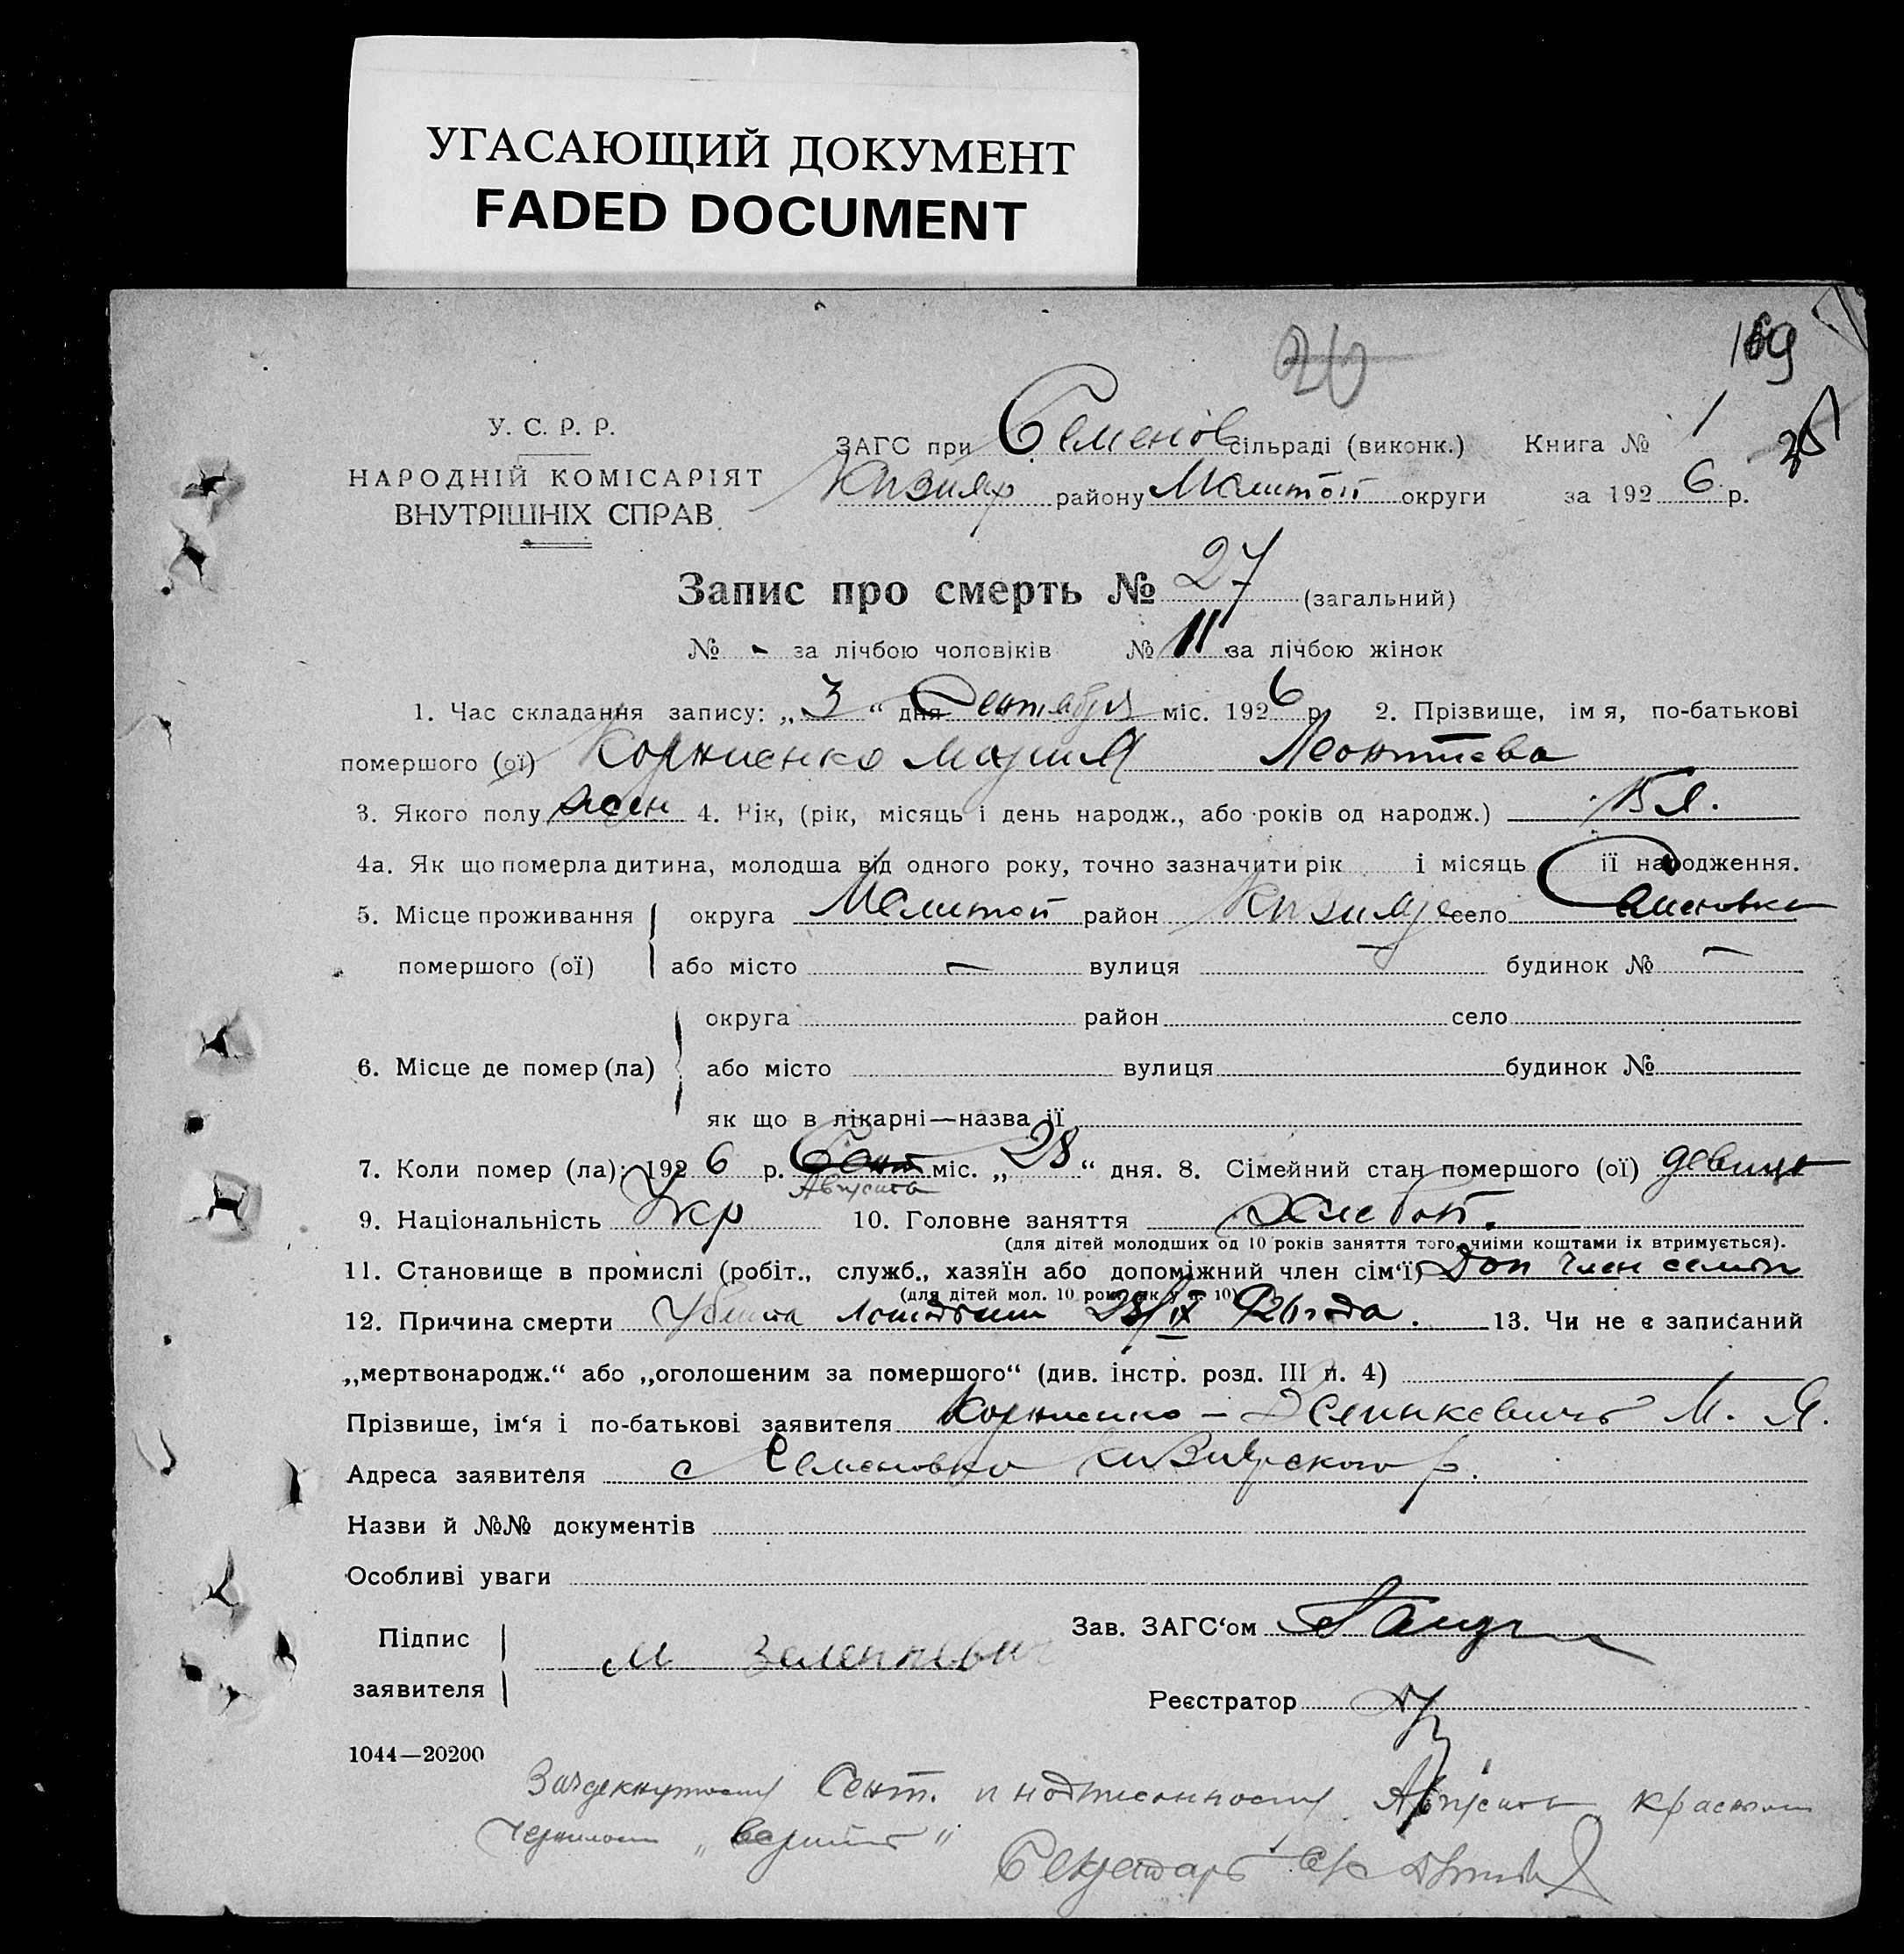 УГАСАЮЩИЙ ДОКУМЕНТ
FADED DOCUMENT
20
169
У. С. Р. Р.
НАРОДНІЙ КОМІСАРІЯТ
ВНУТРІШНІХ СПРАВ
ЗАГС при Семенов сільраді (виконк.) Книга № 1
Кизияр району Мелитоп округи за 1926 р.
Запис про смерть № 27 (загальний)
№ - за лічбою чоловіків № 11 за лічбою жінок
1. Час складання запису: „3“ дня Сентября міс. 1926 р. 2. Прізвище, імя, по-батькові
помершого (ої) Корниенко Мария Леонтиева
3. Якого полу жен 4. Вік, (рік, місяць і день народж., або років од народж.)
4а. Як що померла дитина, молодша від одного року, точно зазначити рік і місяць її народження.
5. Місце проживання округа Мелитоп район Кизияр село Семеновка
помершого (ої) або місто — вулиця — будинок № —
округа район село
6. Місце де помер (ла) або місто вулиця будинок №
як що в лікарні—назва її
7. Коли помер (ла): 1926 р. Сент міс. „28“ дня. 8. Сімейний стан помершого (ої) девица
Августа
9. Національність Укр 10. Головне заняття Хлебоп.
(для дітей молодших од 10 років заняття того, чиїми коштами їх втримується).
11. Становище в промислі (робіт., служб., хазяїн або допоміжний член сім'ї) Доп член семьи
(для дітей мол. 10 рок. як у п. 10)
12. Причина смерти Убита Лошадьми 28/IX 926 года. 13. Чи не є записаний
„мертвонародж.“ або „оголошеним за помершого“ (див. інстр. розд. III п. 4)
Прізвище, ім'я і по-батькові заявителя Корниенко — М. Я.
Адреса заявителя с Семеновка Кизиярского р.
Назви й №№ документів
Особливі уваги
Підпис
заявителя М
Зав. ЗАГС'ом
Реєстратор
1044—20200
Зачеркнутому Сент. и надписанному Августа красным
чернилом „верить"
Секретарь с/с